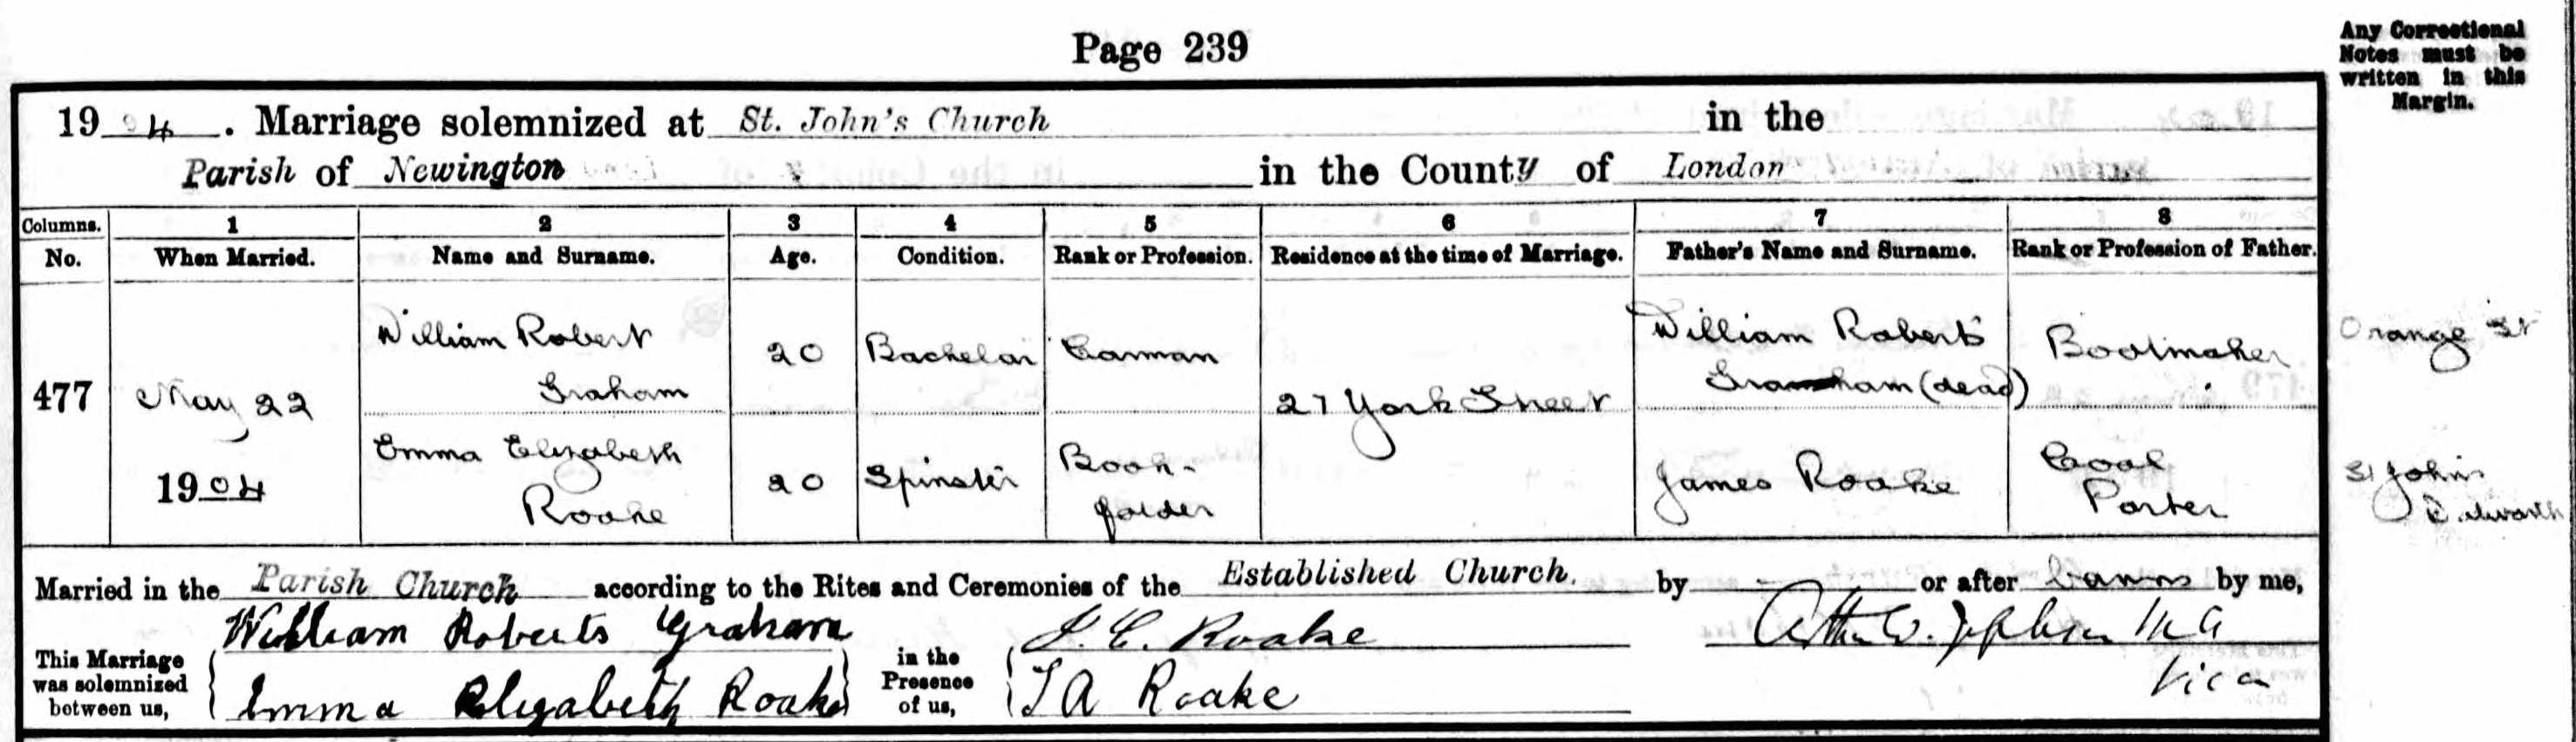 Page 239
Any Correctional
Notes must be
written in this
Margin.
1904. Marriage solemnized at St. John's Church in the
Parish of Newington in the County of London
Columns. 1 2 3 4 5 6 7 8
No. When Married. Name and Surname. Age. Condition. Rank or Profession. Residence at the time of Marriage. Father's Name and Surname. Rank or Profession of Father.
477 May 22 1904
William Robert
Graham
20 Bachelor Carman
27 York Street
William Roberts
Graham (dead)
Bootmaker
Orange St
Emma Elizabeth
Roake
20 Spinster Book-
folder
James Roake
Coal
Porter
St Johns
Walworth
Married in the Parish Church according to the Rites and Ceremonies of the Established Church. by — or after banns by me,
This Marriage
was solemnized
between us,
William Roberts Graham
Emma Elizabeth Roake
in the
Presence
of us,
J. C. Roake
T A Roake
Arthur W. Jephson MA
Vicar